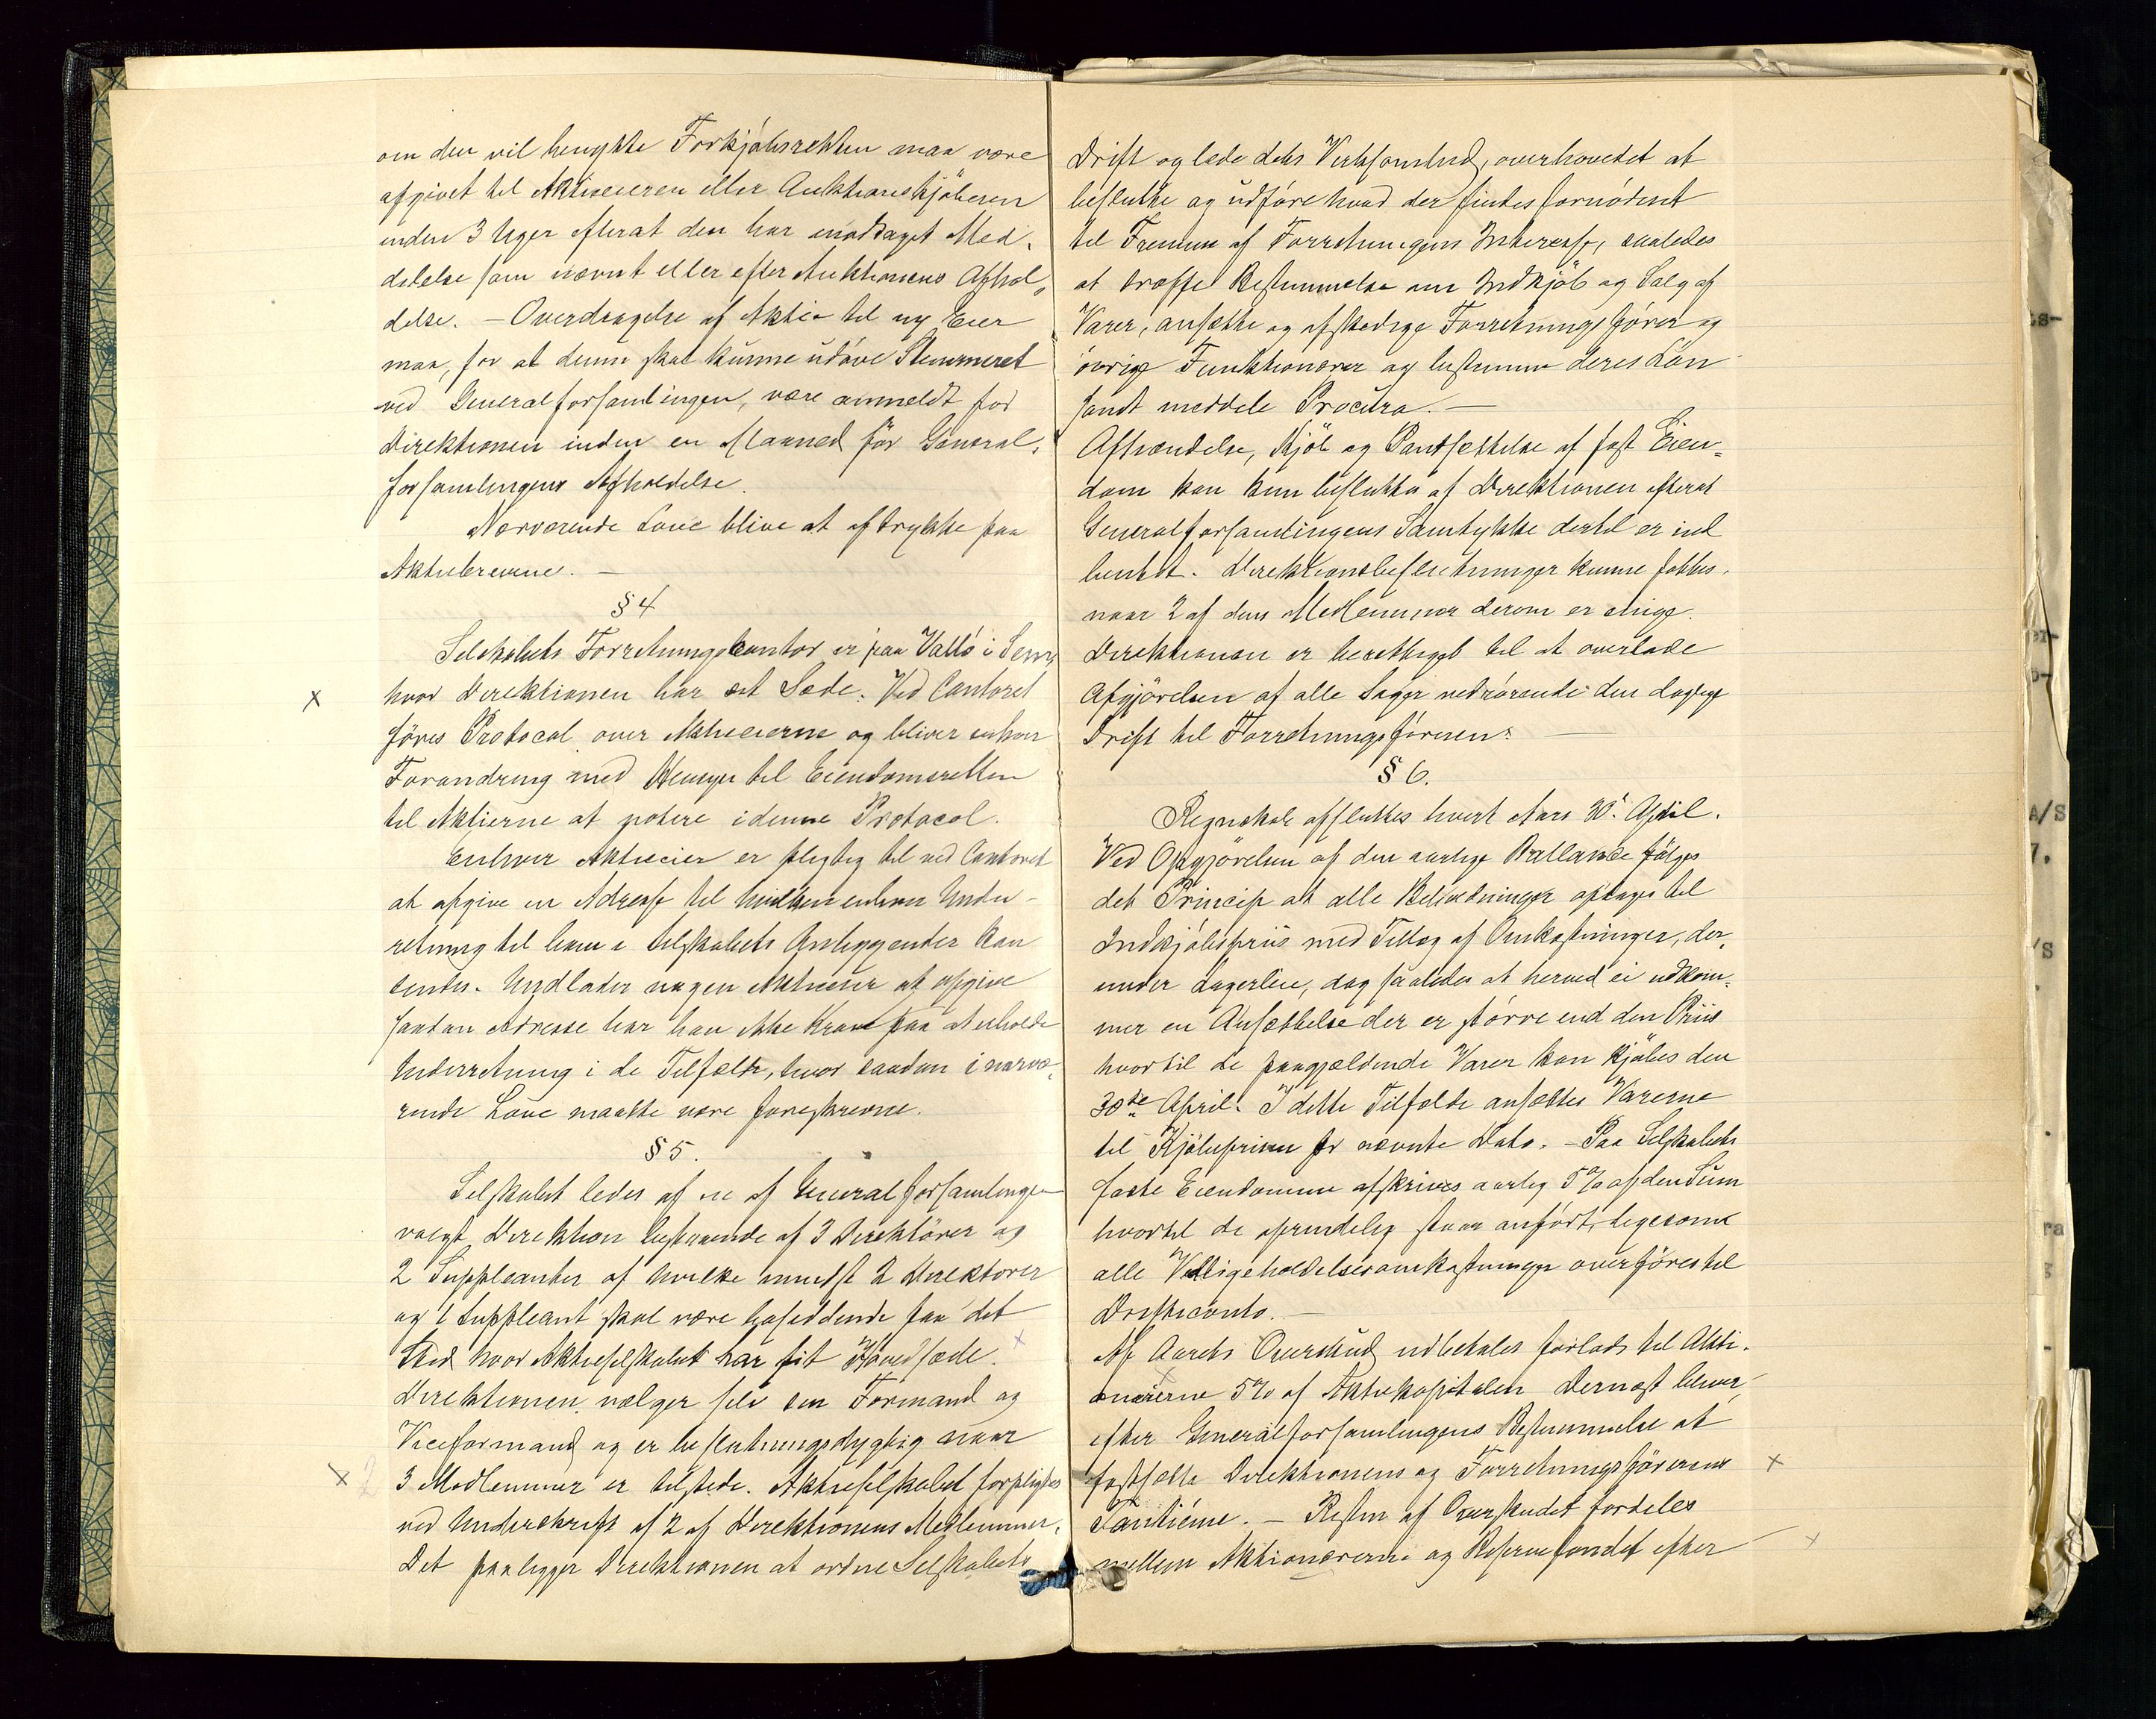 om den vil benytte Forkjøbsretten maa være
afgivet til Aktieeieren eller Auktionskjøberen
inden 3 Uger efterat den har modtaget Med-
delelse som nævnt eller efter Auktionens Afhol-
delse. – Overdragelse af Aktie til ny Eier
maa, for at denne skal kunne udøve Stemmeret
ved Generalforsamlingen, være anmeldt for
Direktionen inden en Maaned før General-
forsamlingens Afholdelse.
Nærværende Love blive at aftrykke paa
Aktiebrevene. –
§ 4
Selskabets Forretningskontor er paa Vallø i Sem,
x hvor Direktionen har sit Sæde. Ved Contoret
føres Protocol over Aktieeierne og bliver enhver
Forandring med Hensyn til Eiendomsretten
til Aktierne at notere i denne Protocol.
Enhver Aktieeier er pligtig til ved Contoret
at opgive en Adresse til hvilken enhver Under-
retning til ham i Selskabets Anliggender kan
sendes. Undlader nogen Aktieeier at opgive
saadan Adresse har han ikke Krav paa at erholde
Underretning i de Tilfælde, hvor saadan i nærvæ-
rende Love maatte være foreskrevne.
§ 5.
Selskabet ledes af en af Generalforsamlingen
valgt Direktion bestaaende af 3 Direktører og
2 Suppleanter af hvilke mindst 2 Direktører
og 1 Suppleant skal være bosiddende paa det
Sted hvor Aktieselskabet har sit Hovedsæde. x
Direktionen vælger selv sin Formand og
Viceformand og er beslutningsdygtig naar
x 2 3 Medlemmer er tilstede. Aktieselskabet forpligtes
ved Underskrift af 2 af Direktionens Medlemmer.
Det paaligger Direktionen at ordne Selskabets
Drift og lede dets Virksomhed, overhovedet at
beslutte og udføre hvad der findes fornødent
til Fremme af Forretningens Interesse, saaledes
at træffe Bestemmelse om Indkjøb og Salg af
Varer, ansætte og afskedige Forretningsfører og
øvrige Funktionærer og bestemme deres Løn
samt meddele Procura. –
Afhændelse, Kjøb og Pantsættelse af fast Eien-
dom kan kun besluttes af Direktionen efterat
Generalforsamlingens Samtykke dertil er ind
hentet. Direktionsbeslutninger kunne fattes,
naar 2 af dens Medlemmer derom er enige.
Direktionen er berettiget til at overlade
Afgjørelsen af alle Sager vedrørende den daglige
Drift til Forretningsføreren. –
§ 6.
Regnskab afsluttes hvert Aars 30' April.
Ved Opgjørelsen af den aarlige Ballance følges
det Princip at alle Beholdninger optages til
Indkjøbspris med Tillæg af Omkostninger, der-
under Lagerleie, dog saaledes at herved ei udkom-
mer en Ansættelse der er større end den Priis
hvortil de paagjældende Varer kan kjøbes den
30te April. I dette Tilfælde ansættes Varerne
til Kjøbsprisen pr nævnte Dato. – Paa Selskabets
faste Eiendomme afskrives aarlig 5 % af den Sum
hvortil de oprindelig staar anført, ligesom
alle Vedligeholdelsesomkostninger overføres til
Driftsconto. –
Af Aarets Overskud udbetales forlods til Akti-
onærerne 5 % af Aktiekapitalen. Dernæst bliver
efter Generalforsamlingens Bestemmelse at
fastsætte Direktionens og Forretningsførerens x
Tantième. – Resten af Overskudet fordeles
mellem Aktionærerne og Reservefondet efter x